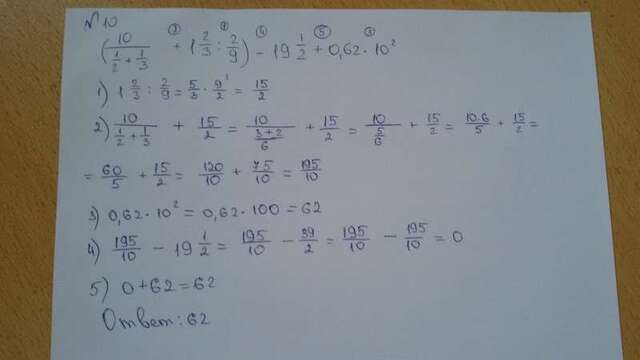 №10
(10/(1/2 + 1/3) + 1 2/3 : 2/9) - 19 1/2 + 0,62 · 10²
1) 1 2/3 : 2/9 = 5/3 · 9/2 = 15/2
2) 10/(1/2 + 1/3) + 15/2 = 10/((3+2)/6) + 15/2 = 10/(5/6) + 15/2 = 10·6/5 + 15/2 =
= 60/5 + 15/2 = 120/10 + 75/10 = 195/10
3) 0,62 · 10² = 0,62 · 100 = 62
4) 195/10 - 19 1/2 = 195/10 - 39/2 = 195/10 - 195/10 = 0
5) 0 + 62 = 62
Ответ: 62